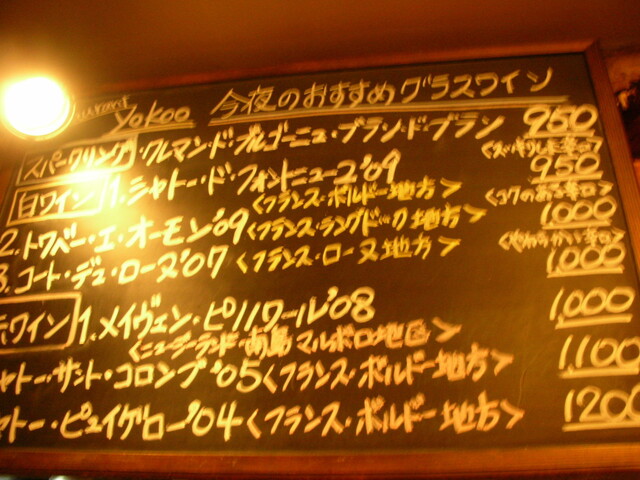 Yokoo 今夜のおすすめグラスワイン
スパークリング・クレマンド・ブルゴーニュ・ブランド・ブラン 950
<スッキリした辛口>
白ワイン 1.シャトー・ド・フォントニーユ'09 950
<フランス・ボルドー地方> <コクのある辛口>
2.トワベー・エ・オーモン'09<フランス・ラングドック地方> 1,000
<やわらかい辛口>
3.コート・デュ・ローヌ'07 <フランス・ローヌ地方> 1,000
赤ワイン 1.メイヴェン・ピノノワール'08 1,000
<ニュージーランド・南島マルボロ地区>
ャトー・サント・コロンブ'05<フランス・ボルドー地方> 1,100
ャトー・ピュイグロー'04<フランス・ボルドー地方> 1200